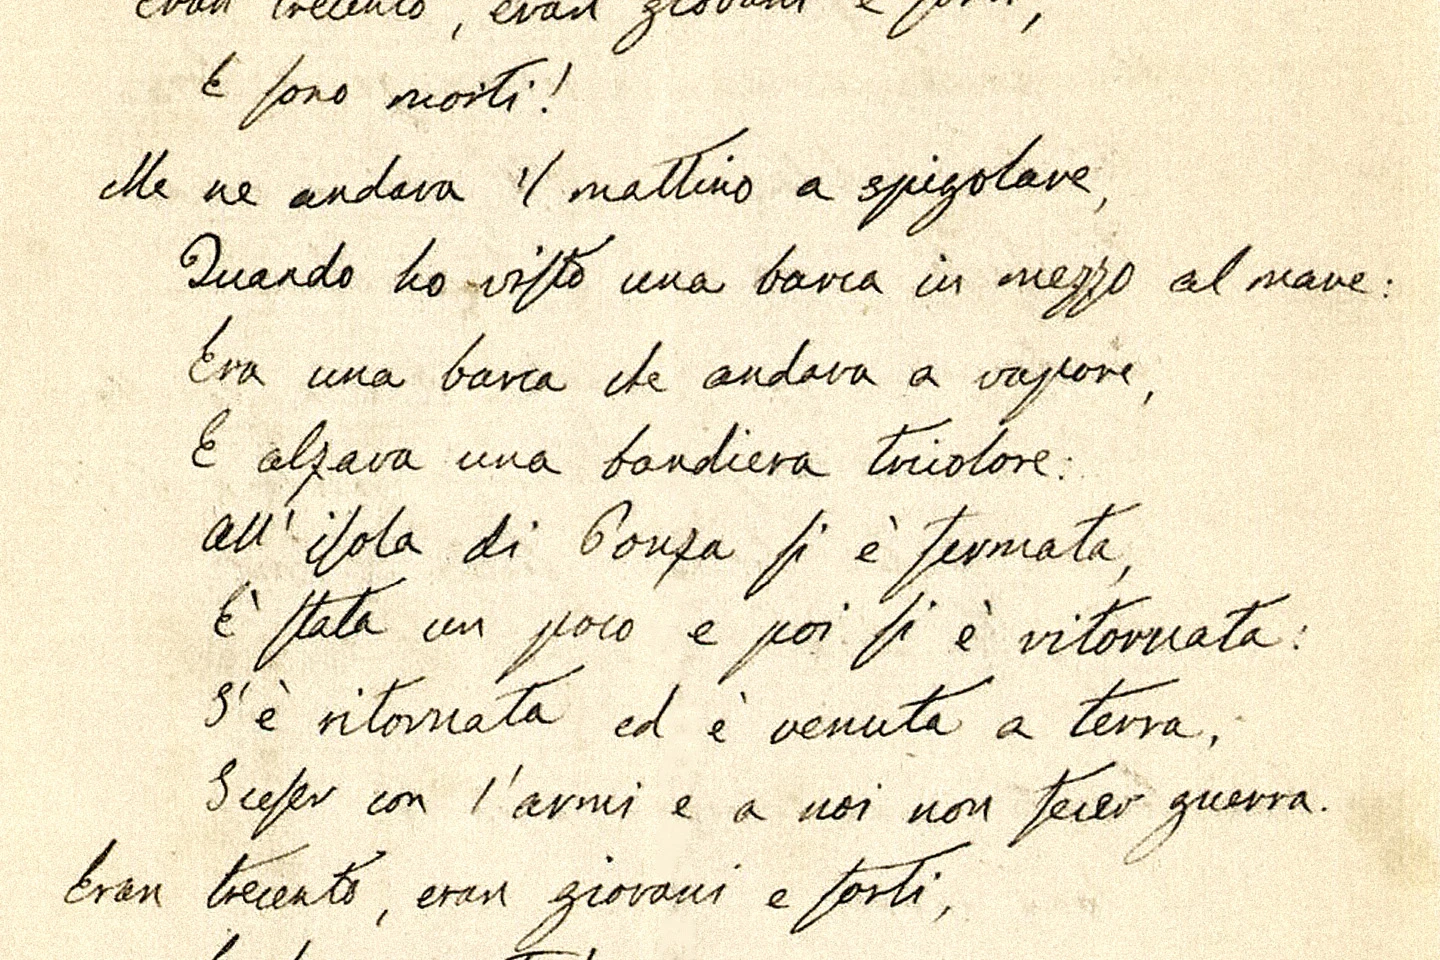 Eran trecento, eran giovani e forti,
E sono morti!
Me ne andava 'l mattino a spigolare,
Quando ho visto una barca in mezzo al mare:
Era una barca che andava a vapore,
E alzava una bandiera tricolore:
All' isola di Ponza si è fermata,
È stata un poco e poi si è ritornata:
S'è ritornata ed è venuta a terra,
Sceser con l'armi e a noi non fecer guerra.
Eran trecento, eran giovani e forti,